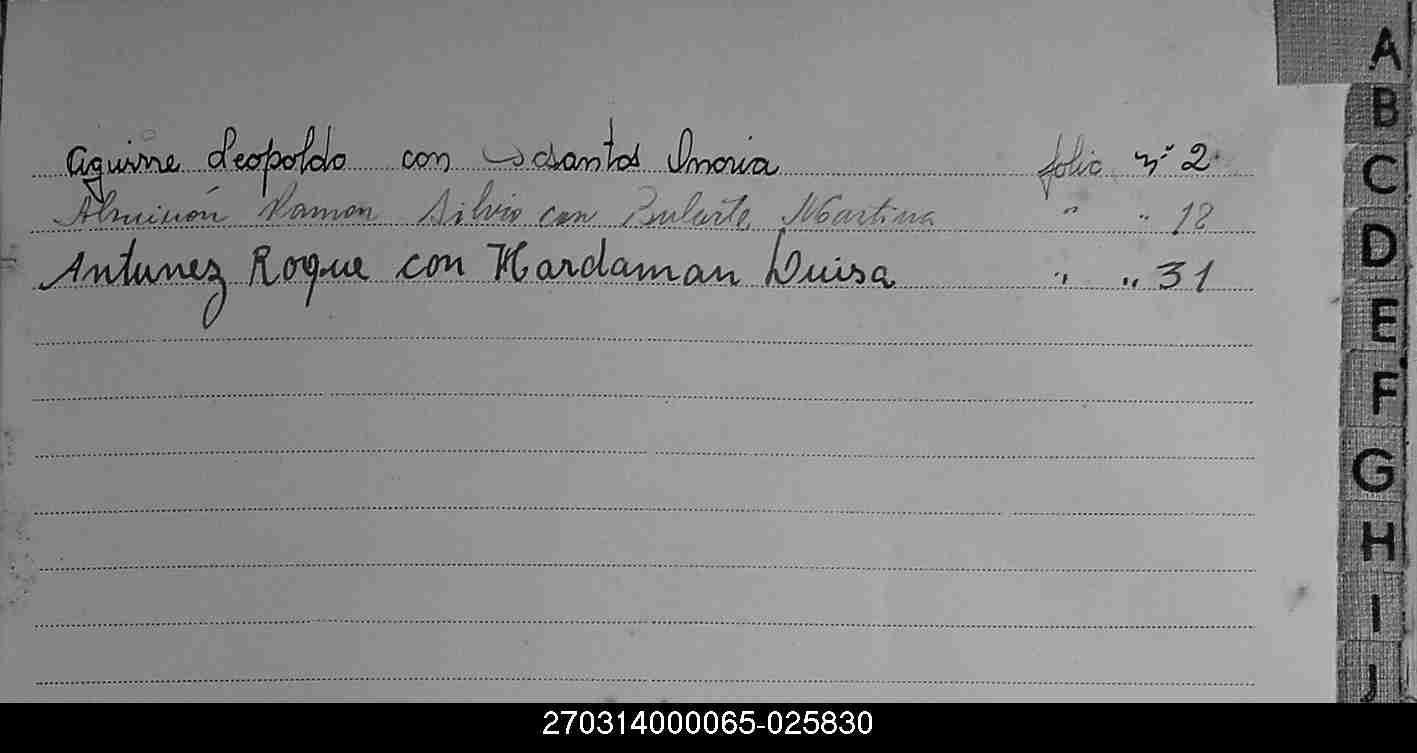 Aguirre Leopoldo con Santos Maria folio nº 2
Almirón Ramon Silvio con Martina " " 12
Antunez Roque con Hardaman Luisa " " 31
A
B
C
D
E
F
G
H
I
J
270314000065-025830